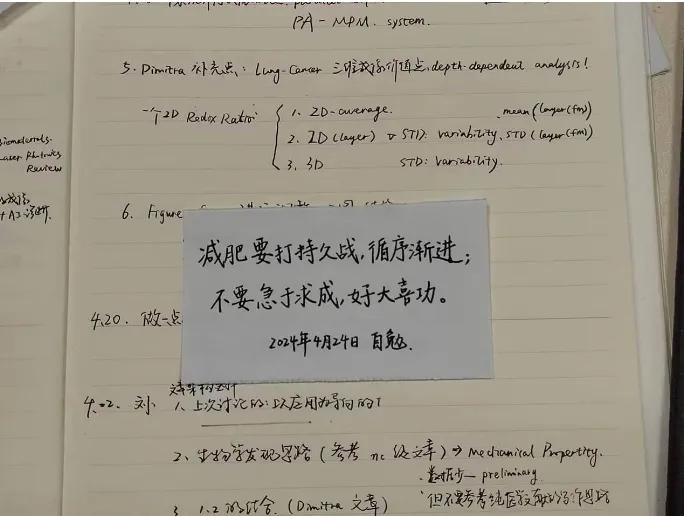 PA-MPM. system.
5. Dimitra 补充点: Lung-Cancer 三维成像价值点, depth-dependent analysis!
一个2D Redox Ratio:
1. 2D-average. mean(layer(fm)
2. 2D (layer) STD: variability, STD (layer(fm))
3. 3D STD: variability.
Review
6. Figure
减肥要打持久战,循序渐进;
不要急于求成,好大喜功。
2024年4月24日 自勉.
4.20. 做一点
1、上次讨论的: 以应用为导向的
2、生物学发现思路 (参考 nc 级文章) → Mechanical Propertity.
数据少— preliminary
3 1.2 的结合. (Dimitra 文章)